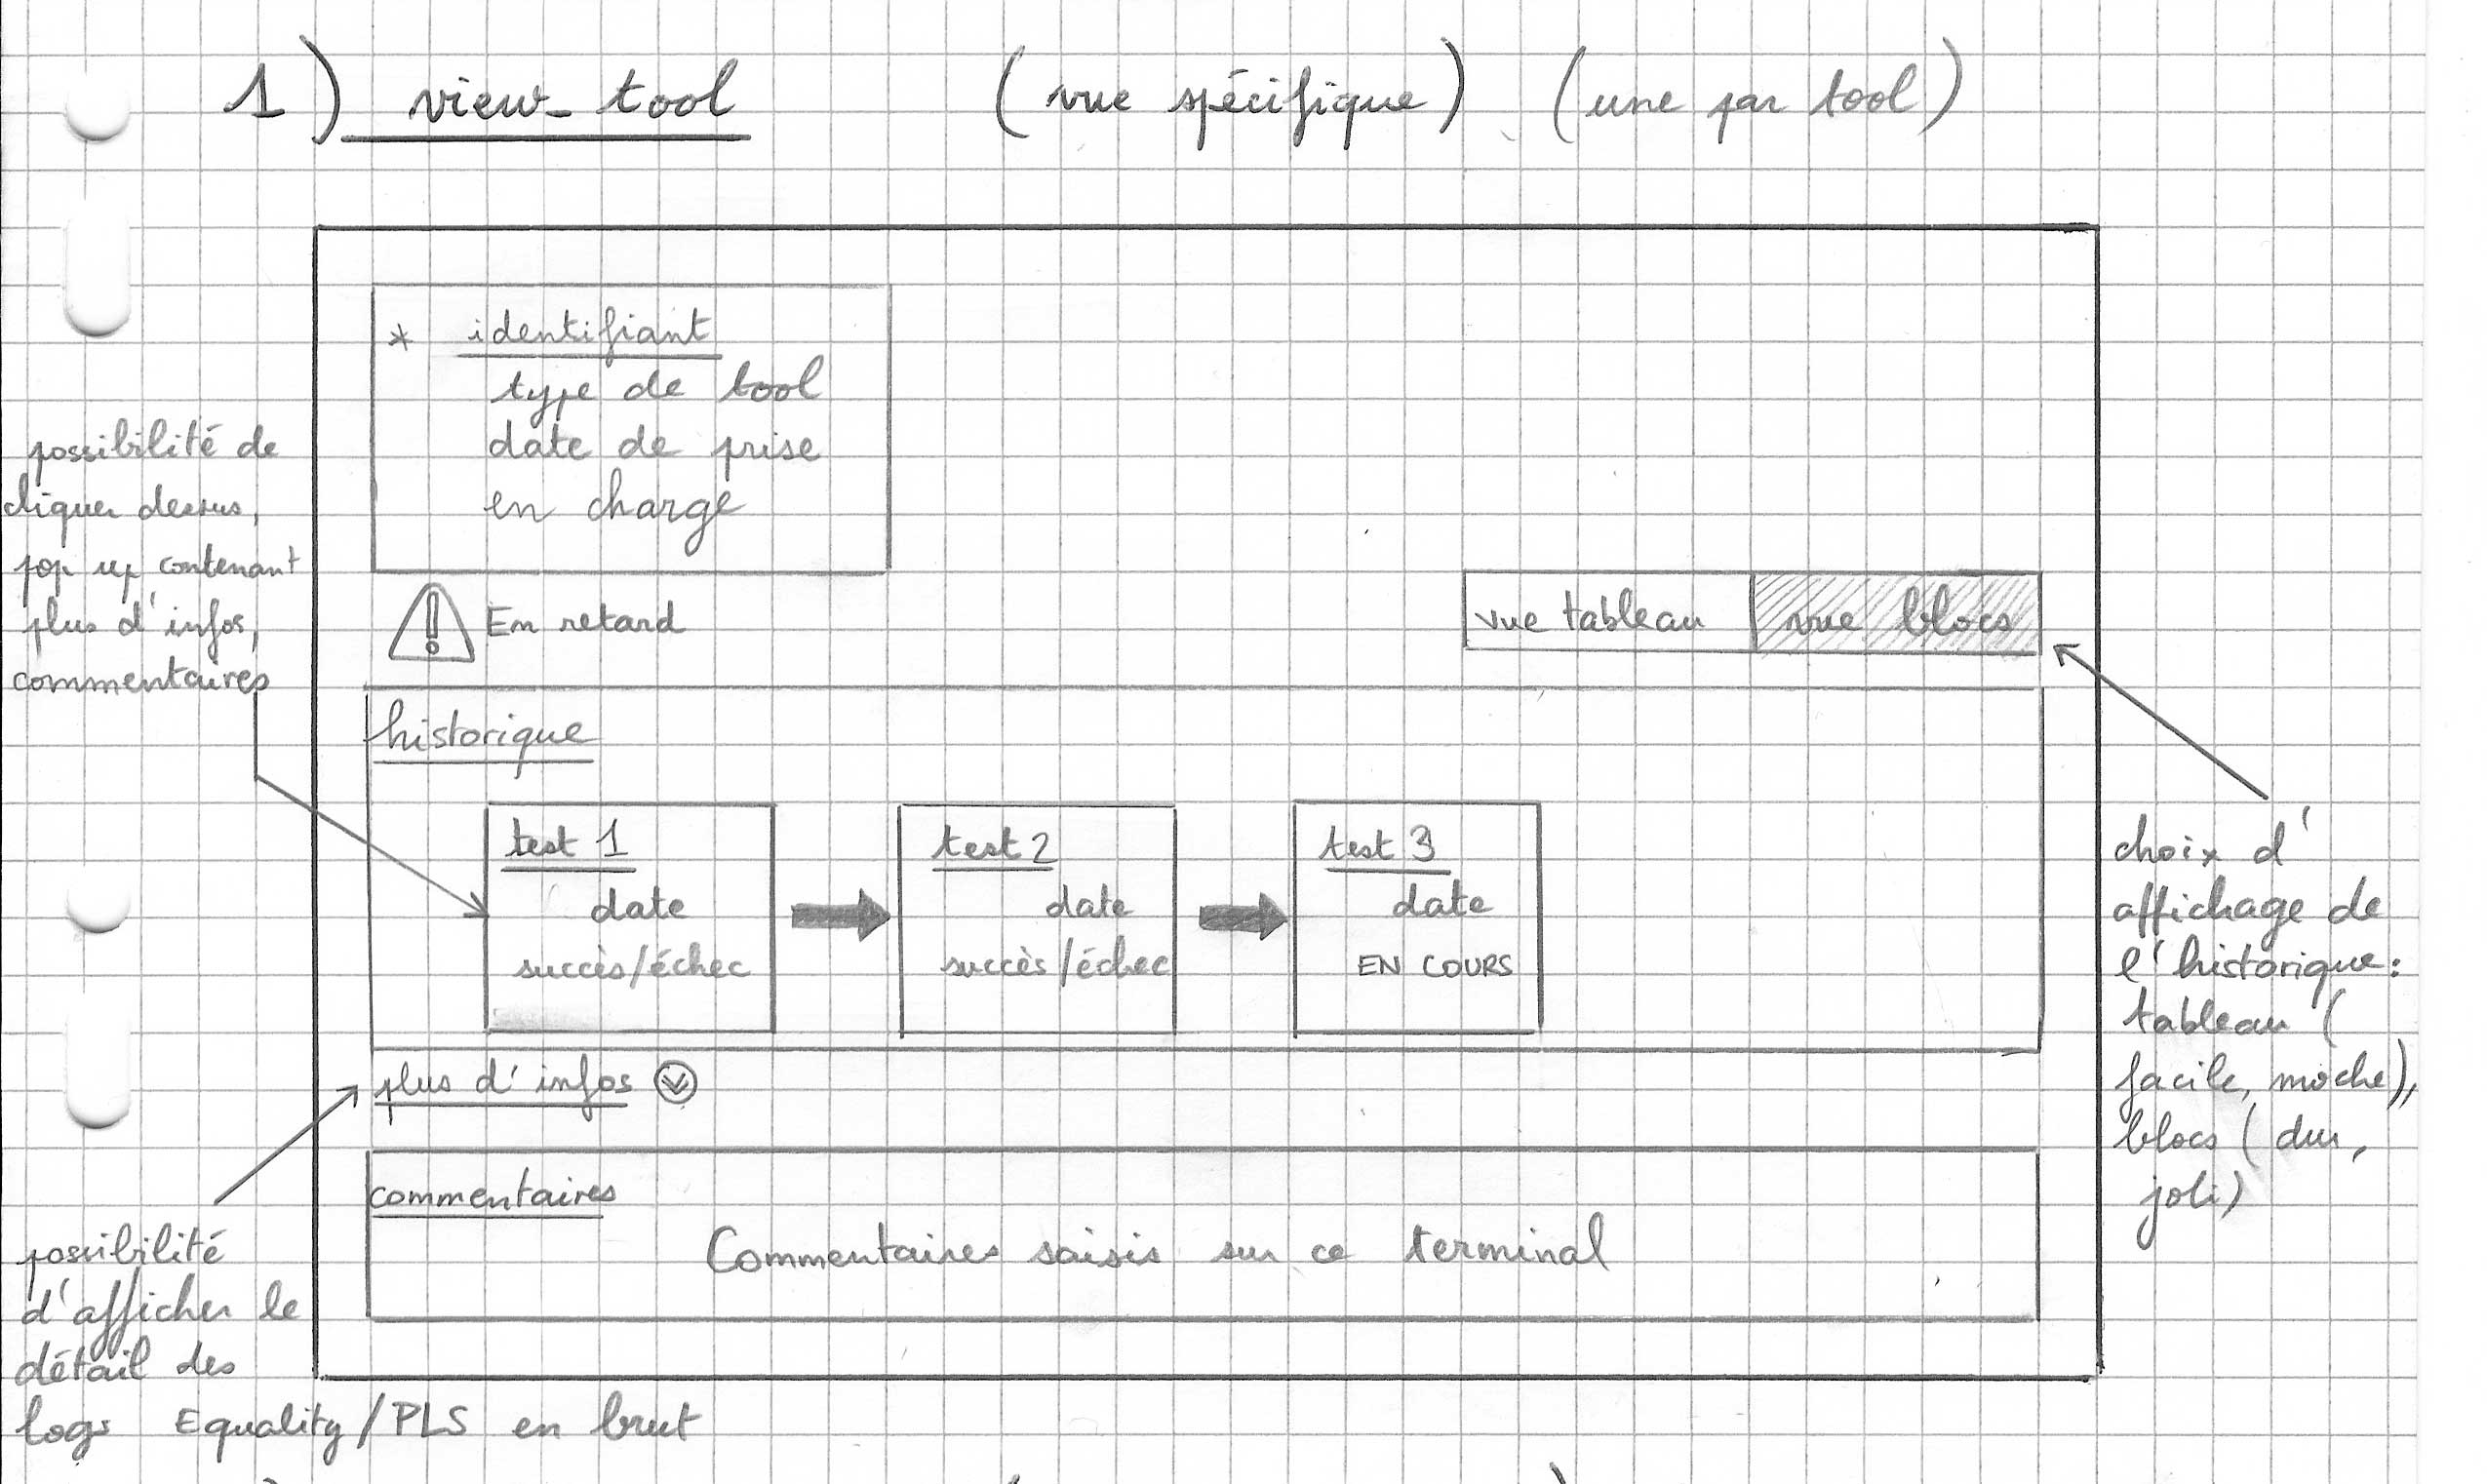 1) view_tool (vue spécifique) (une par tool)
* identifiant
type de tool
date de prise
en charge
possibilité de
cliquer dessus,
pop up contenant
plus d'infos,
commentaires
En retard
vue tableau vue blocs
historique
test 1
date
succès/échec
test 2
date
succès/échec
test 3
date
EN COURS
choix d'
affichage de
l'historique:
tableau (
facile, moche),
blocs (dur,
joli)
plus d'infos
commentaires
Commentaires saisis sur ce terminal
possibilité
d'afficher le
détail des
logs Equality/PLS en brut